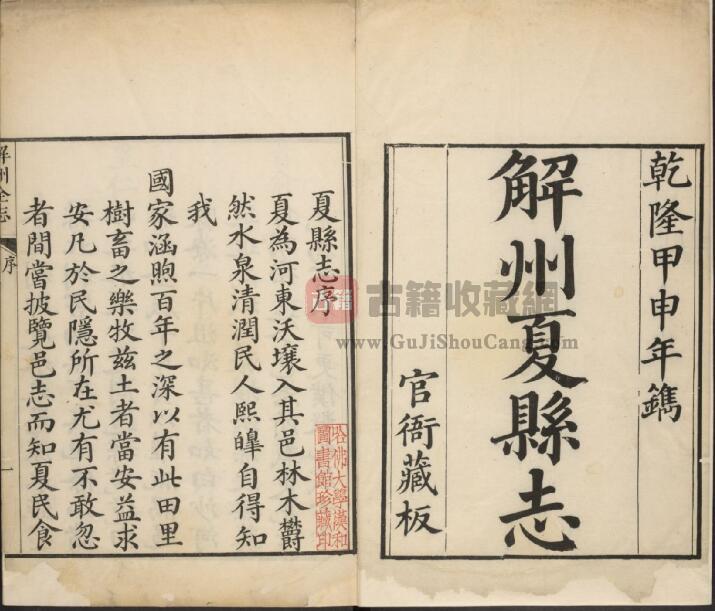 乾隆甲申年鐫
解州夏縣志
官衙藏板
夏縣志序
夏為河東沃壤入其邑林木欝
然水泉清潤民人熙皞自得知
我
國家涵煦百年之深以有此田里
樹畜之樂牧兹土者當安益求
安凡於民隱所在尤有不敢忽
者間嘗披覽邑志而知夏民食
解州全志
序
一
哈佛大學漢和
圖書館珍藏印
古籍
古籍收藏網
www.GuJiShouCang.com